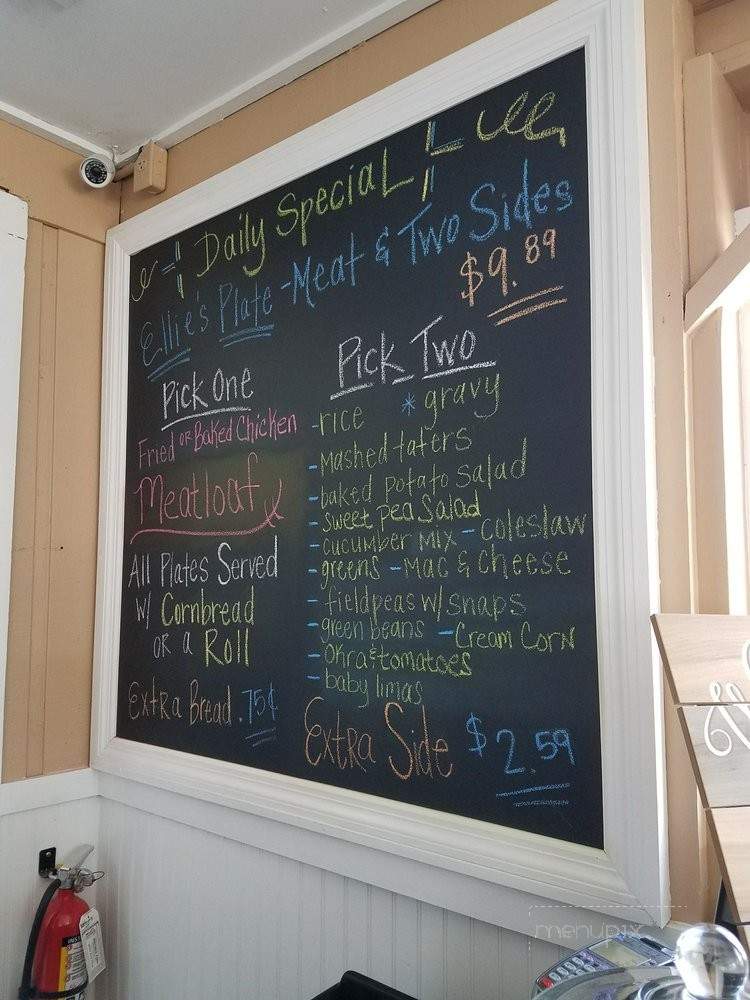 Daily Special
Ellie's Plate - Meat & Two Sides
$9.89
Pick One
Fried or Baked Chicken
Meatloaf
All Plates Served
w/ Cornbread
or a Roll
Extra Bread .75¢
Pick Two
-rice *gravy
-Mashed taters
-baked potato salad
-sweet pea Salad
-cucumber mix -coleslaw
-greens -Mac & Cheese
-fieldpeas w/ snaps
-green beans -Cream Corn
-Okra & tomatoes
-baby limas
Extra Side $2.59
menupix